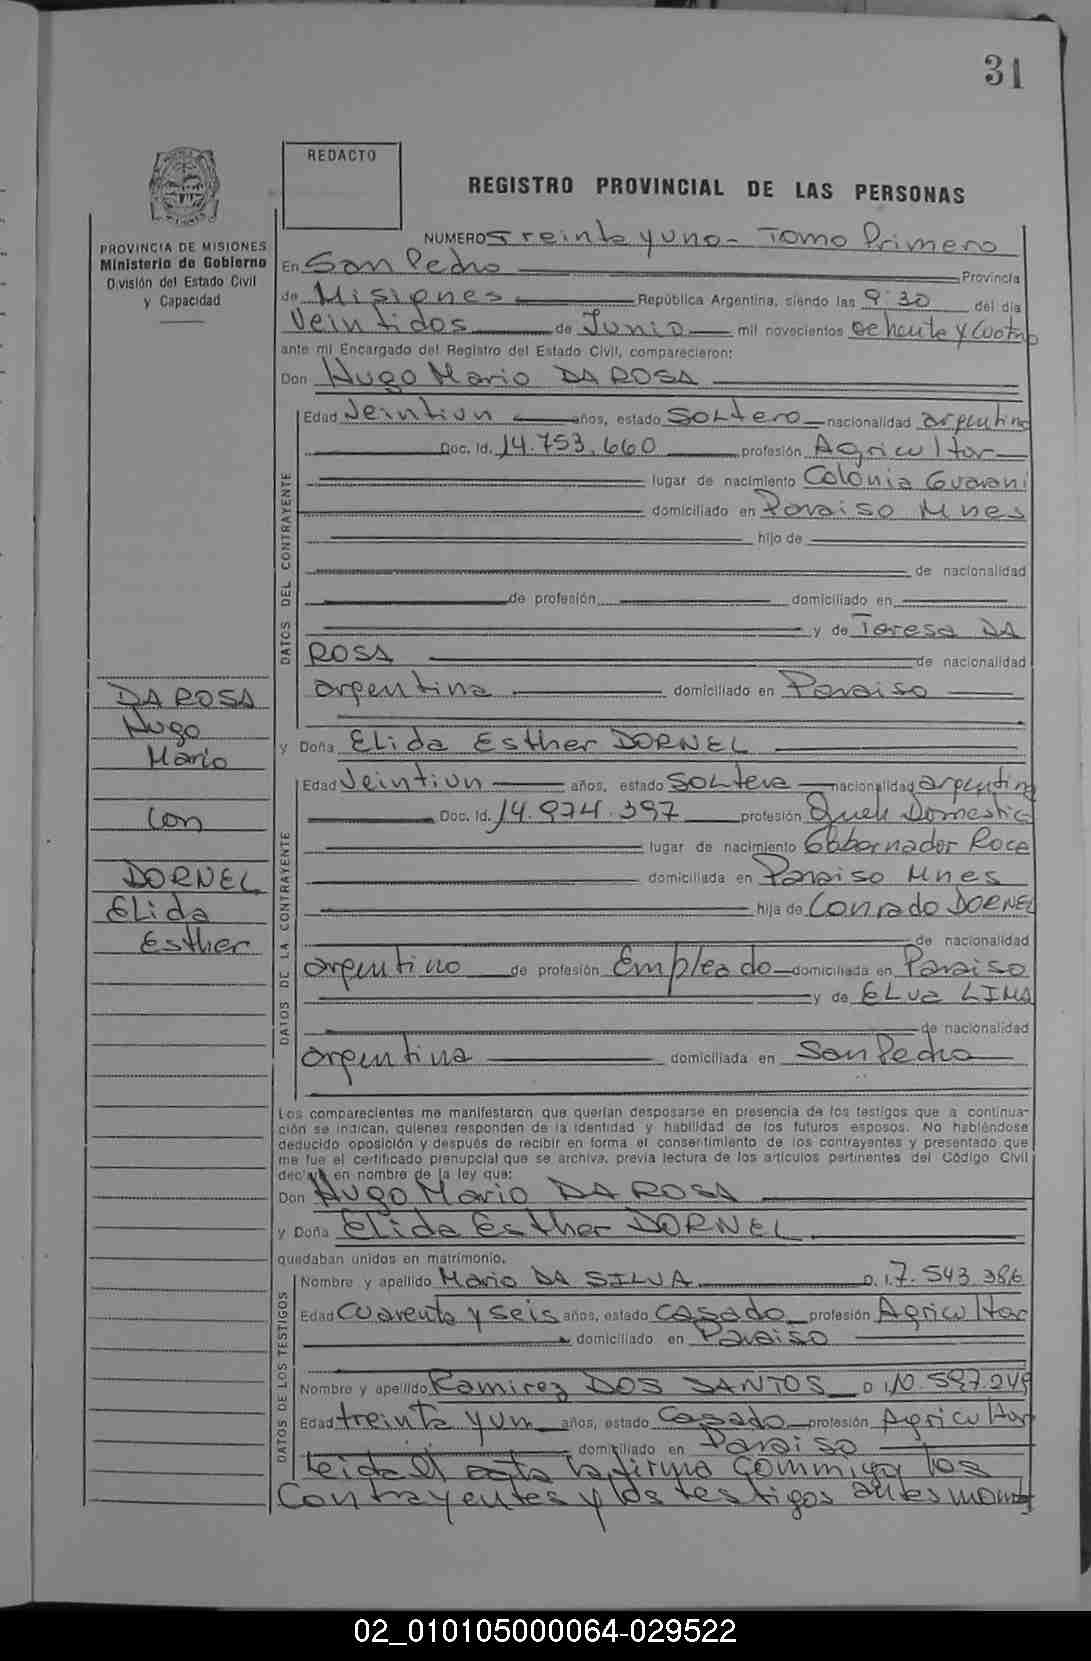 31
REDACTO
REGISTRO PROVINCIAL DE LAS PERSONAS
PROVINCIA DE MISIONES
Ministerio de Gobierno
División del Estado Civil
y Capacidad
NUMERO Treinta y uno - Tomo Primero
En San Pedro Provincia
de Misiones República Argentina, siendo las 9:30 del día
Veintidos de Junio mil novecientos ochenta y cuatro
ante mi Encargado del Registro del Estado Civil, comparecieron:
Don Hugo Mario DA ROSA
DATOS DEL CONTRAYENTE
Edad Veintiun años, estado Soltero nacionalidad argentino
Doc. Id. 14.753.660 profesión Agricultor
lugar de nacimiento Colonia Guarani
domiciliado en Paraiso Mnes
hijo de
de nacionalidad
de profesión domiciliado en
y de Teresa DA
ROSA de nacionalidad
argentina domiciliado en Paraiso
DA ROSA
Hugo
Mario
con
DORNEL
Elida
Esther
y Doña Elida Esther DORNEL
DATOS DE LA CONTRAYENTE
Edad Veintiun años, estado Soltera nacionalidad argentina
Doc. Id. 14.974.397 profesión Queh Domestic
lugar de nacimiento Gobernador Roca
domiciliada en Paraiso Mnes
hija de Conrado DORNEL
de nacionalidad
argentino de profesión Empleado domiciliada en Paraiso
y de Elva LIMA
de nacionalidad
argentina domiciliada en San Pedro
Los comparecientes me manifestaron que querían desposarse en presencia de los testigos que a continua-
ción se indican, quienes responden de la identidad y habilidad de los futuros esposos. No habiéndose
deducido oposición y después de recibir en forma el consentimiento de los contrayentes y presentado que
me fue el certificado prenupcial que se archiva, previa lectura de los artículos pertinentes del Código Civil
declaré en nombre de la ley que:
Don Hugo Mario DA ROSA
y Doña Elida Esther DORNEL
quedaban unidos en matrimonio.
DATOS DE LOS TESTIGOS
Nombre y apellido Mario DA SILVA D.I. 7.543.386
Edad Cuarenta y seis años, estado Casado profesión Agricultor
domiciliado en Paraiso
Nombre y apellido Ramirez DOS SANTOS D.I. 10.597.249
Edad treinta y un años, estado Casado profesión Agricultor
domiciliado en Paraiso
Leida el acta la firma conmigo los
Contrayentes y los testigos antes
02_010105000064-029522